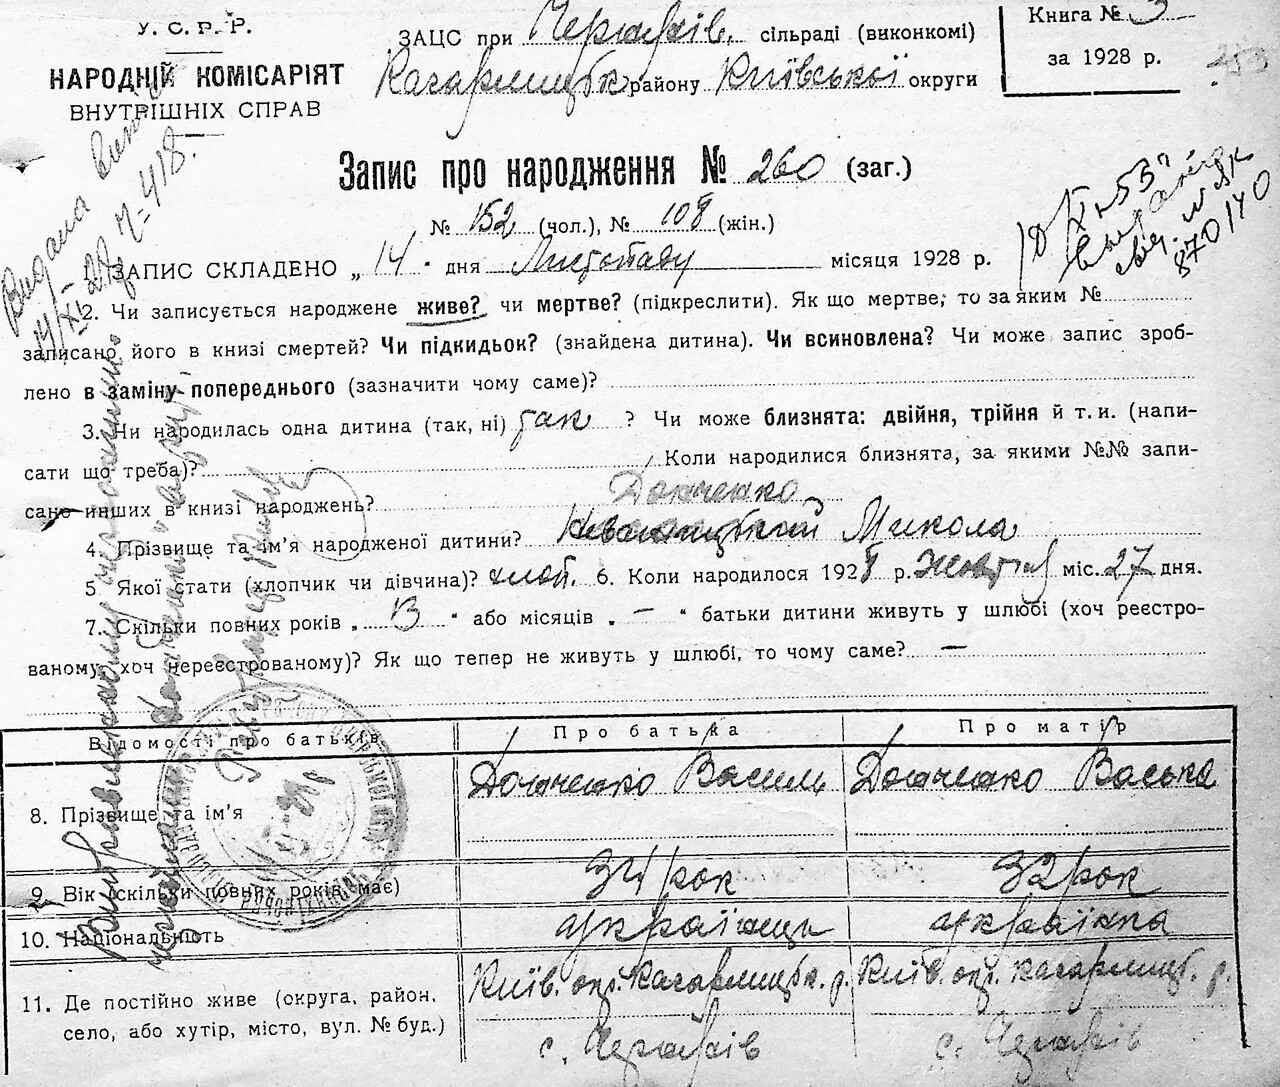 У. С. Р. Р.
НАРОДНІЙ КОМІСАРІЯТ
ВНУТРІШНІХ СПРАВ
ЗАЦС при сільраді (виконкомі)
Кагарлицьк району Київської округи
Книга № 3
за 1928 р.
253
Запис про народження № 260 (заг.)
№ 152 (чол.), № 108 (жін.)
1. ЗАПИС СКЛАДЕНО „ 14 " дня Листопаду місяця 1928 р.
2. Чи записується народжене живе? чи мертве? (підкреслити). Як що мертве, то за яким №
записано його в книзі смертей? Чи підкидьок? (знайдена дитина). Чи всиновлена? Чи може запис зроб-
лено в заміну попереднього (зазначити чому саме)?
3. Чи народилась одна дитина (так, ні) так ? Чи може близнята: двійня, трійня й т. и. (напи-
сати що треба)? Коли народилися близнята, за якими №№ запи-
сано инших в книзі народжень?
Донченко
4. Прізвище та ім'я народженої дитини? Микола
5. Якої стати (хлопчик чи дівчина)? хлоп. 6. Коли народилося 1928 р. Жовтня міс. 27 дня.
7. Скільки повних років „ 13 " або місяців „ — " батьки дитини живуть у шлюбі (хоч реєстро-
ваному, хоч нереєстрованому)? Як що тепер не живуть у шлюбі, то чому саме? —
Відомості про батьків Про батька Про матір
8. Прізвище та ім'я Донченко Василь Донченко Васька
9. Вік (скільки повних років має) 34 рок 32 рок
10. Національність українець українка
11. Де постійно живе (округа, район, село, або хутір, місто, вул. № буд.) Київ. окр. Кагарлицьк. р. Київ. окр. Кагарлицьк. р.
Видана
870140